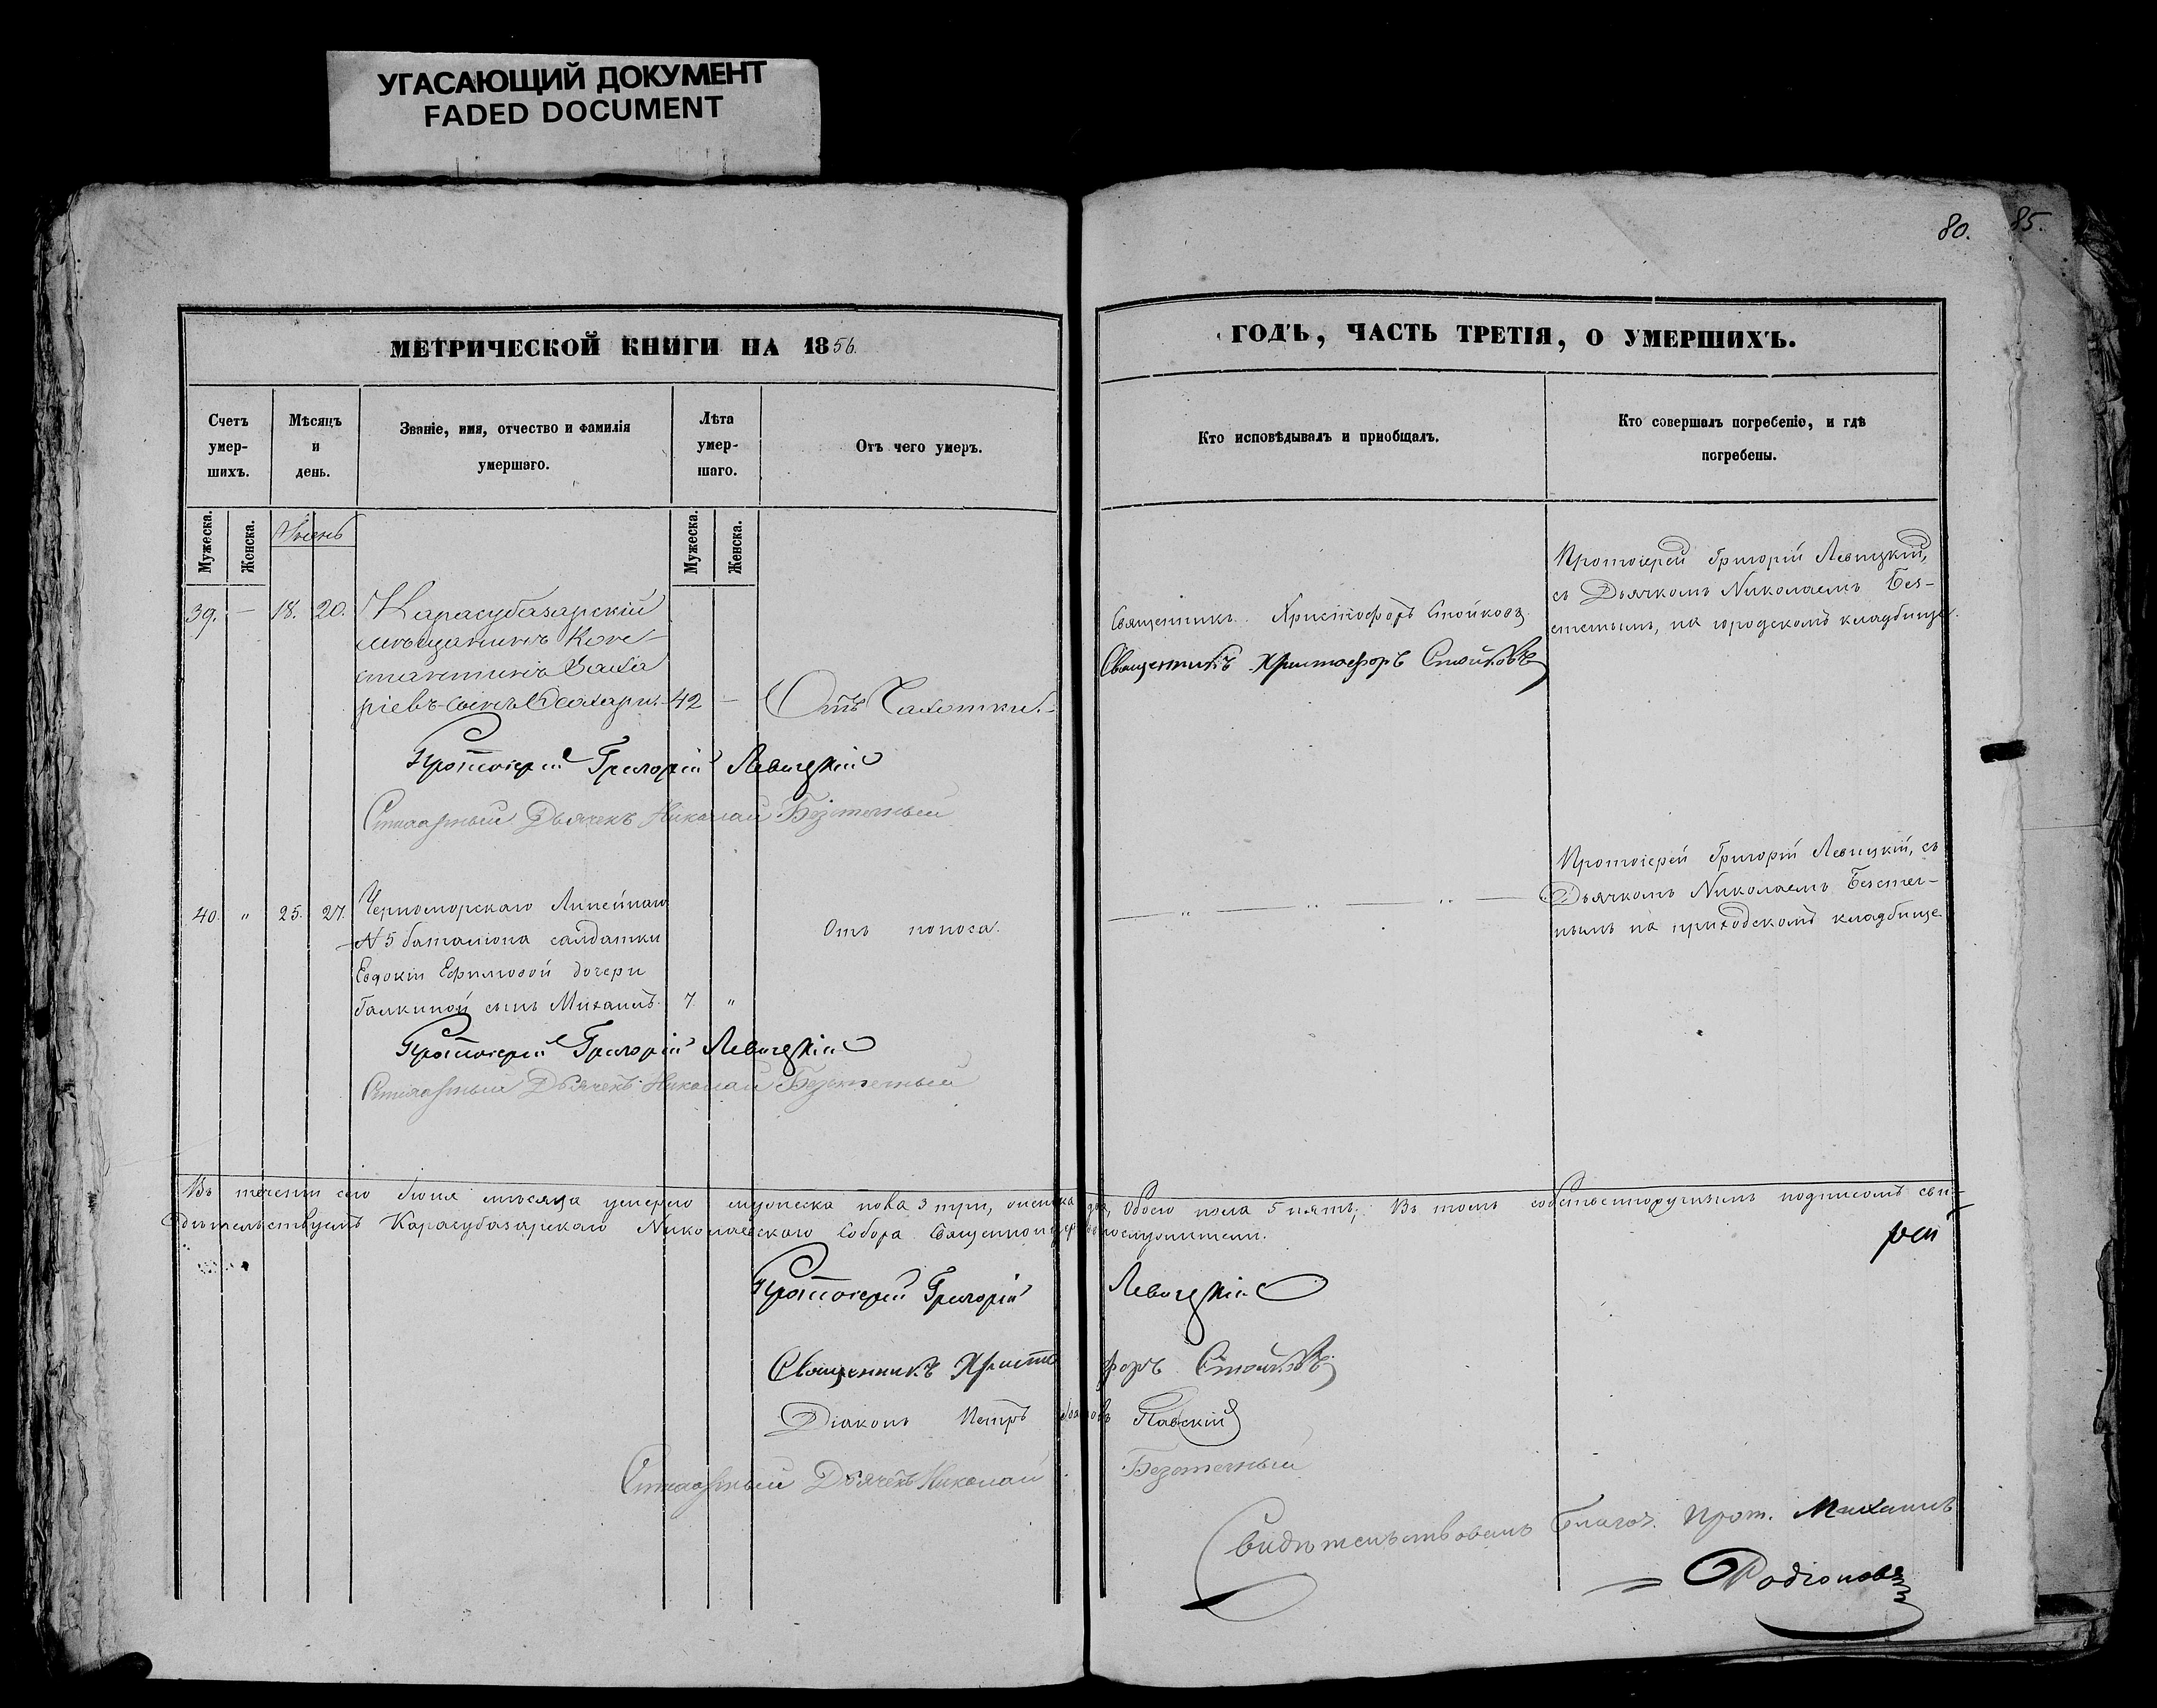 УГАСАЮЩИЙ ДОКУМЕНТ
FADED DOCUMENT
80. 85.
МЕТРИЧЕСКОЙ КНИГИ НА 1856.
ГОДЪ, ЧАСТЬ ТРЕТІЯ, О УМЕРШИХЪ.
Счетъ
умер-
шихъ.
Мѣсяцъ
и
день.
Званіе, имя, отчество и фамилія
умершаго.
Лѣта
умер-
шаго.
Отъ чего умеръ.
Кто исповѣдывалъ и пріобщалъ.
Кто совершалъ погребеніе, и гдѣ
погребены.
Мужеска.
Женска.
Мужеска.
Женска.
39. — 18. 20. Карасубазарскій
мѣщанинъ Кон-
стантинъ Заха
ріевъ сынъ 42 — Отъ Чахотки.
Священникъ Христофоръ Стойковъ
Священникъ Христофоръ Стойковъ
Протоіерей Григорій Левицкій,
съ Дьячкомъ Николаемъ Без-
стемъ, на городскомъ кладбище.
Протоіерей Григорій Левицкій
Дьячекъ Николай
40. " 25. 27. Черноморскаго Линейнаго
№ 5 баталіона салдатки
Евдокіи Ефимовой дочери
Галкиной сынъ Михаилъ. 7. "
Отъ поноса.
Протоіерей Григорій Левицкій, съ
Дьячкомъ Николаемъ
на приходскомъ кладбище
Протоіерей Григорій Левицкій
Дьячекъ Николай
Въ теченіи сего Іюня мѣсяца умерло мужеска пола 3 три, женска два, Обоего пола 5 пять; Въ томъ собственноручнымъ подписомъ сви-
дѣтельствуемъ Карасубазарскаго Николаевскаго Собора Священноцерковнослужители.
Протоіерей Григорій Левицкій
Священникъ Христофоръ Стойковъ
Діаконъ Петръ
Дьячекъ Николай
Свидѣтельствовалъ Благоч. Прот. Михаилъ
Родіоновъ